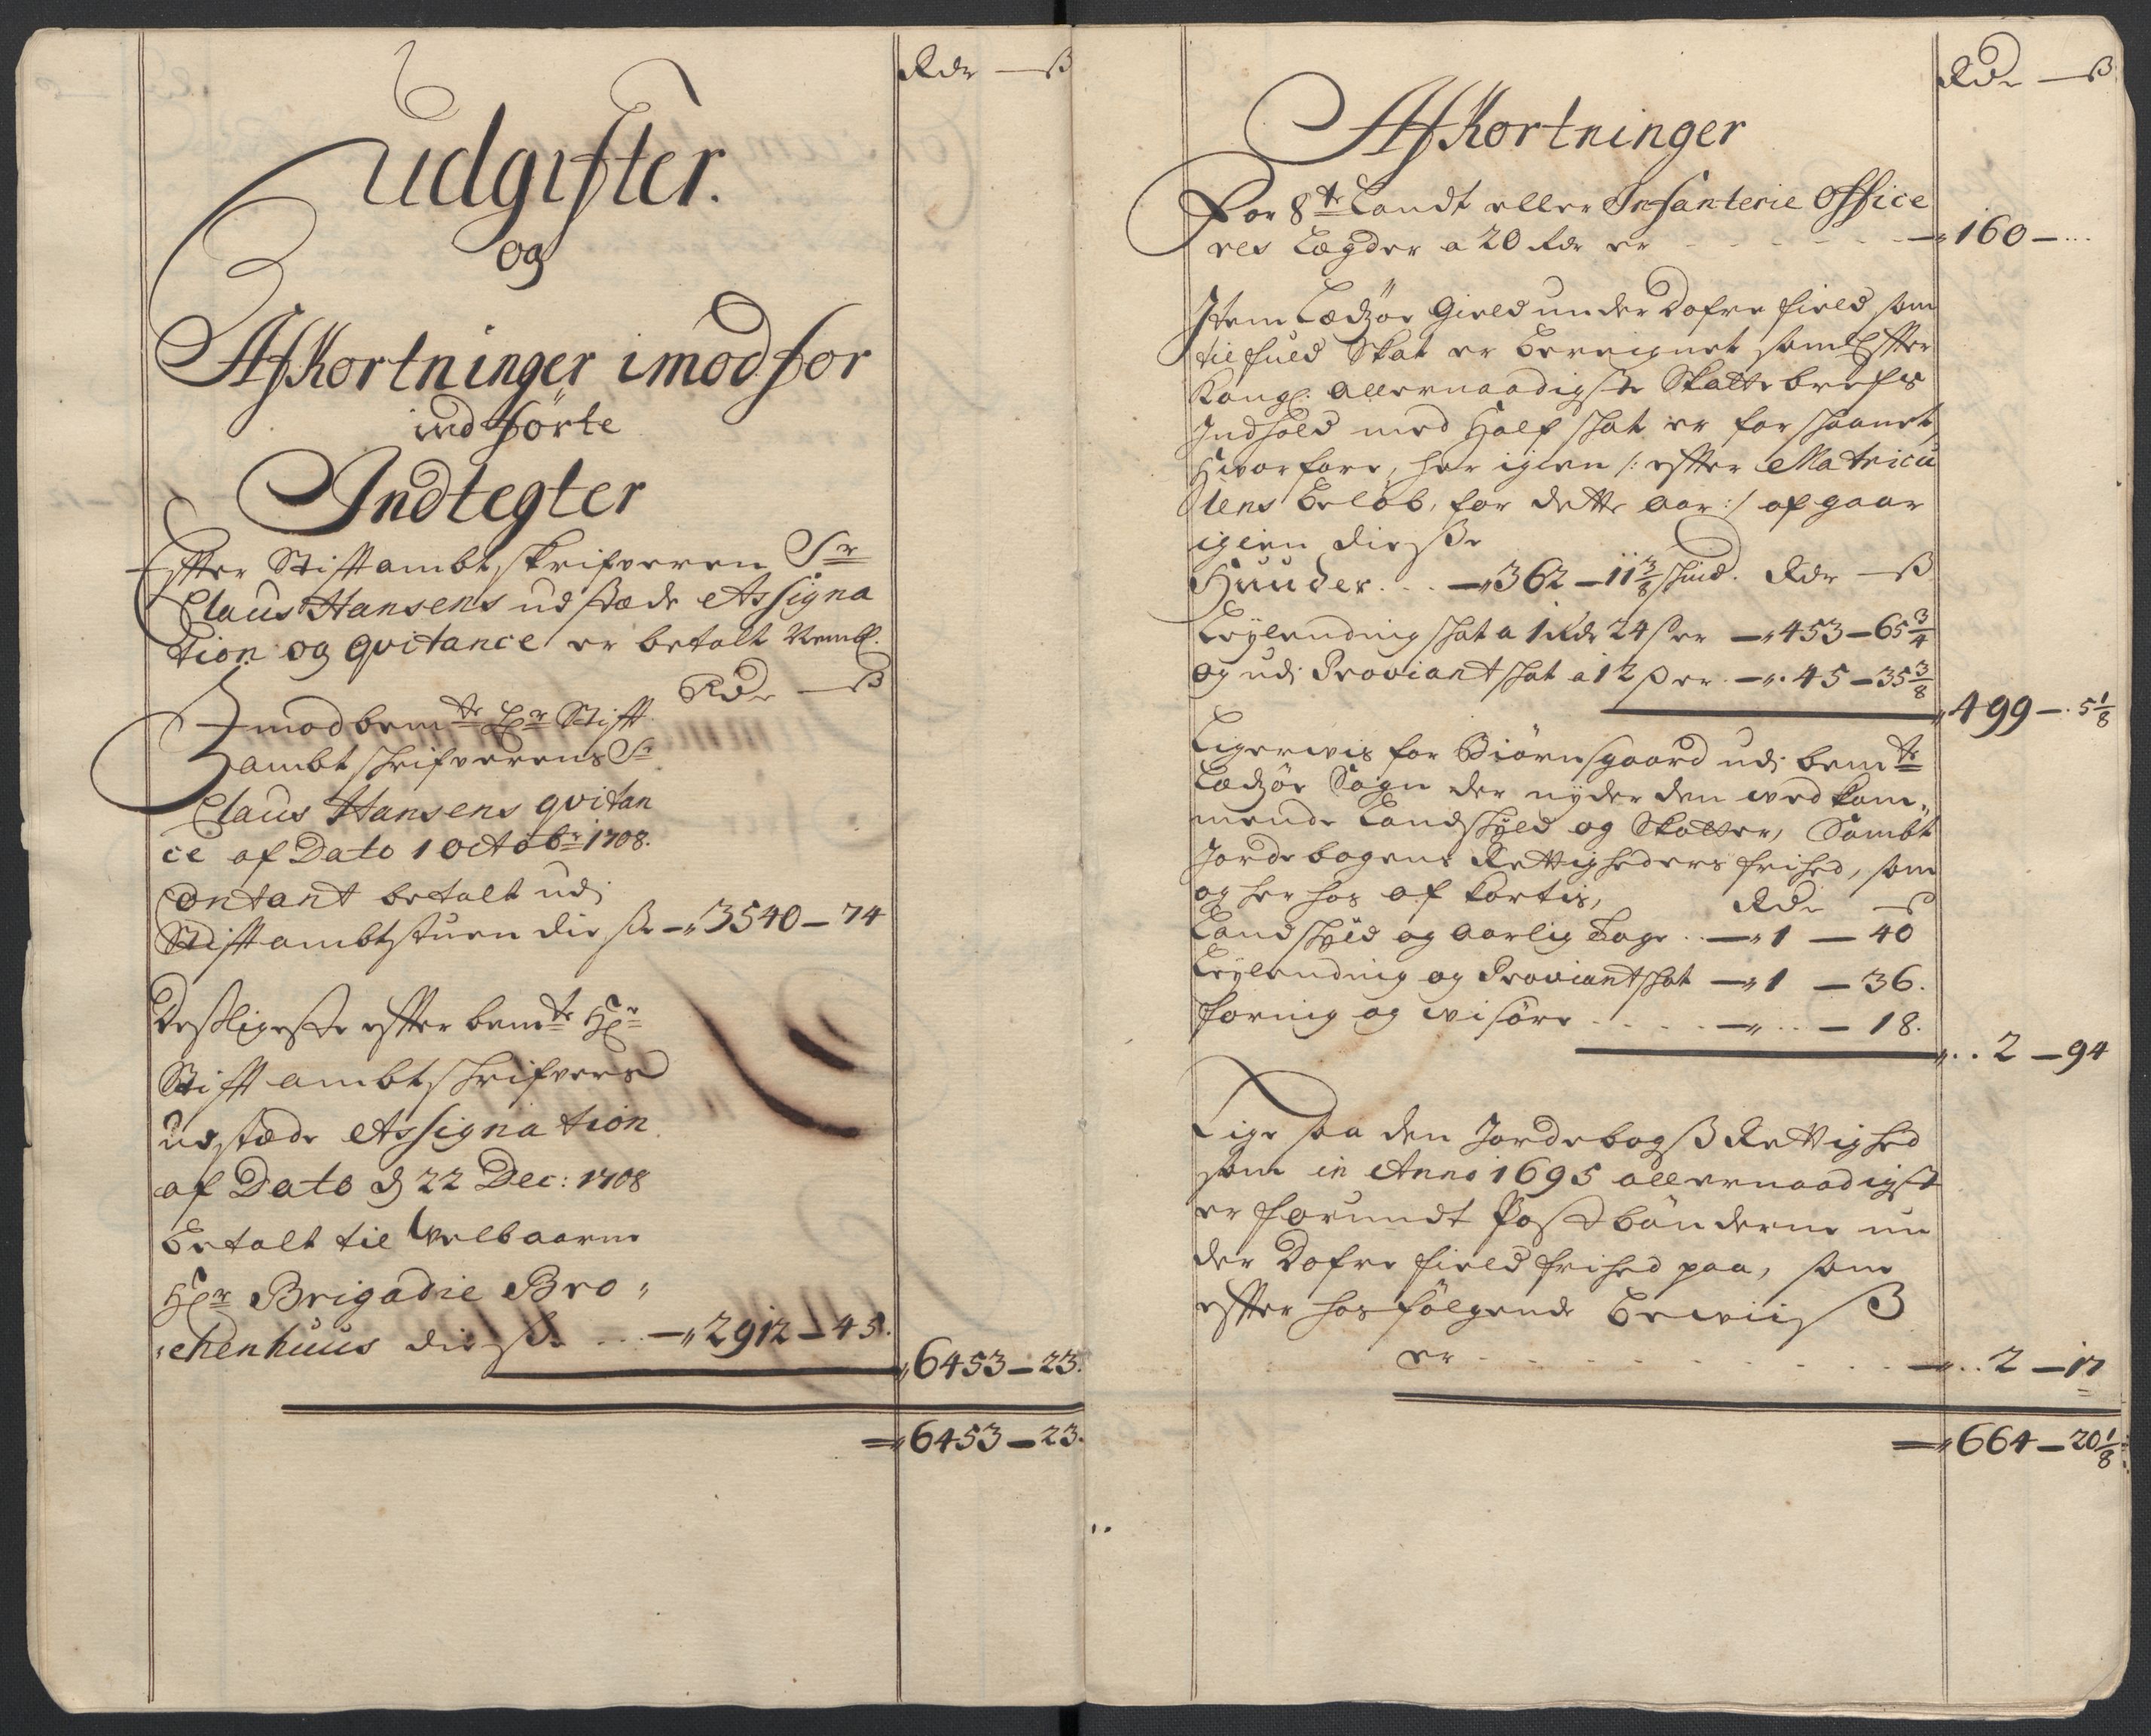 Rdr — ß
Udgifter.
og
Afkortninger imod for
indførte
Indtegter
Effter Stifftambtskrifveren Sr
Claus Hansens udstæde Assigna
tion og qvitance er betalt Neml:
Rdr — ß
Imod bemte Hr Stifft
ambtskrifverens Sr
Claus Hansens qvitan
ce af Dato 1 Octobr 1708.
Contant betalt udi
Stifftambtstuen die ße — 3540 — 74
Desligeste effter bemte Hr
Stifft ambtskrifvers
udstæde Assignation
af Dato d 22 Dec: 1708
betalt til Velbaarne
Hr Brigadie Bro „
chenhuus die ße ... — 2912 — 45.
6453 — 23.
6453 — 23.
Rdr — ß
Afkortninger
For 8te Landt eller Infanterie Office
rers Lægder a 20 Rdr er — 160 — ...
Item Lædsør Gield under Dofre field som
til fuld Skat er bereignet som effter
Kongl: allernaadigste Skattebrefs
Indhold med Half skat er forskaanet,
Hvorfore, her igien /: effter Matricu
lens beløb, for dette aar :/ afgaar
igien die ße
Huuder ... — 362 — 11 3/8 skind. Rdr — ß
Leylending skat a 1 Rdr 24 ß er — 453 — 65 3/4
og udi Proviantskat a 12 ß er — 45 — 35 3/8
499 — 5 1/8
Ligerwis for Biørnsgaard udi bemte
Lædsør Sogn der nyder den wed kom„
mende Landskyld og Skatter, Sambt
Jordebogens Rettigheders frihed, som
og her hos af kortis, Rdr — ß
Landskyld og aarlig Tage .. — 1 — 40
Leylending og Proviantskat — 1 — 36.
foring og wisøre .... — .. — 18.
.. 2 — 94
Lige saa den Jordebogs Rettighed
som in Anno 1695 allernaadigst
er forundt Postbønderne un
der Dofre field frihed paa, som
effter hosfølgende bewiis ß
er — .. 2 — 17
664 — 20 1/8